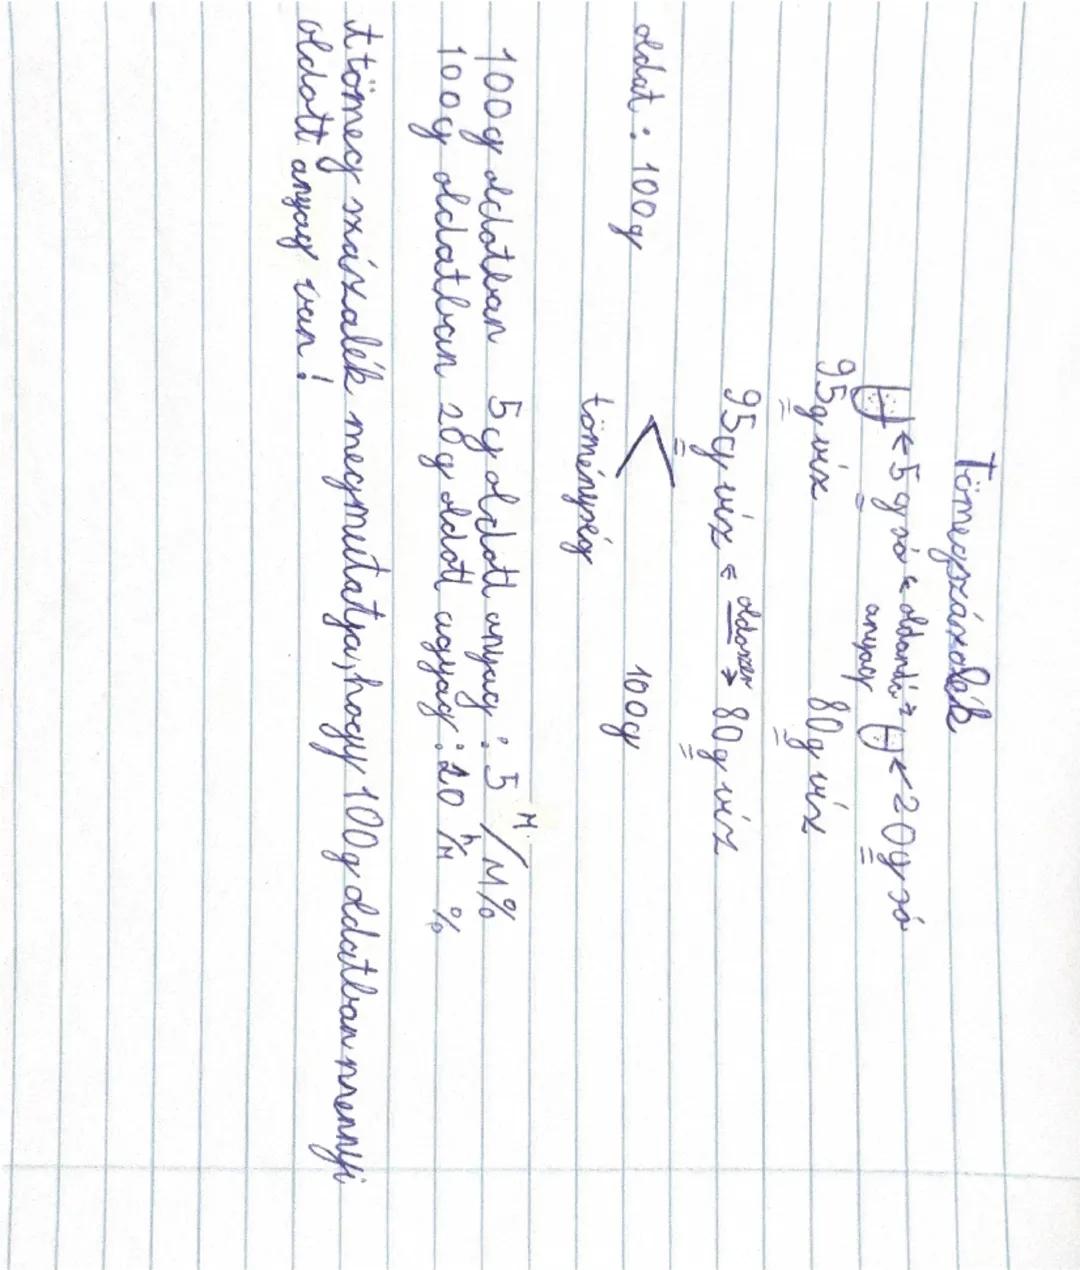 Tömegszázalék
← 5 g só ← oldandó → ← 20 g só
anyag
95 g víz 80 g víz
95 g víz ← oldószer → 80 g víz
oldat : 100 g < 100 g
töménység
100 g oldatban 5 g oldott anyag : 5 M/M%
100 g oldatban 20 g oldott agyag : 20 M/M %
A tömeg százalék megmutatja, hogy 100 g oldatban mennyi
oldott anyag van !